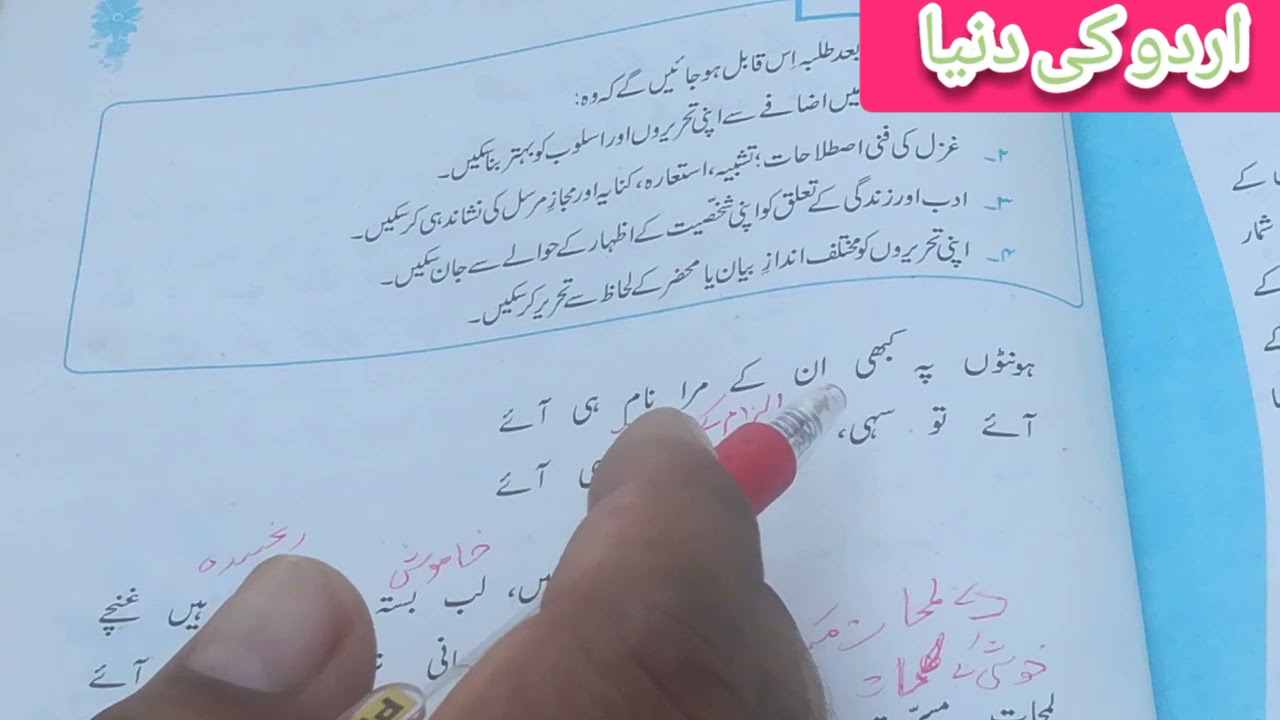 اردو کی دنیا
بعد طلبہ اِس قابل ہوجائیں گے کہ وہ:
میں اضافے سے اپنی تحریروں اور اسلوب کو بہتر بنا سکیں۔
۲۔ غزل کی فنی اصطلاحات؛ تشبیہ، استعارہ، کنایہ اور مجازِ مرسل کی نشاندہی کرسکیں۔
۳۔ ادب اور زندگی کے تعلق کو اپنی شخصیّت کے اظہار کے حوالے سے جان سکیں۔
۴۔ اپنی تحریروں کو مختلف اندازِ بیان یا محضر کے لحاظ سے تحریر کرسکیں۔
ہونٹوں پہ کبھی ان کے مرا نام ہی آئے
الزام کے
آئے تو سہی، ہی آئے
خاموش رنجیدہ
لب بستہ ہیں غنچے
کے لمحات
آئے
خوشی کے لمحات
لمحات
کے
شمار
کے